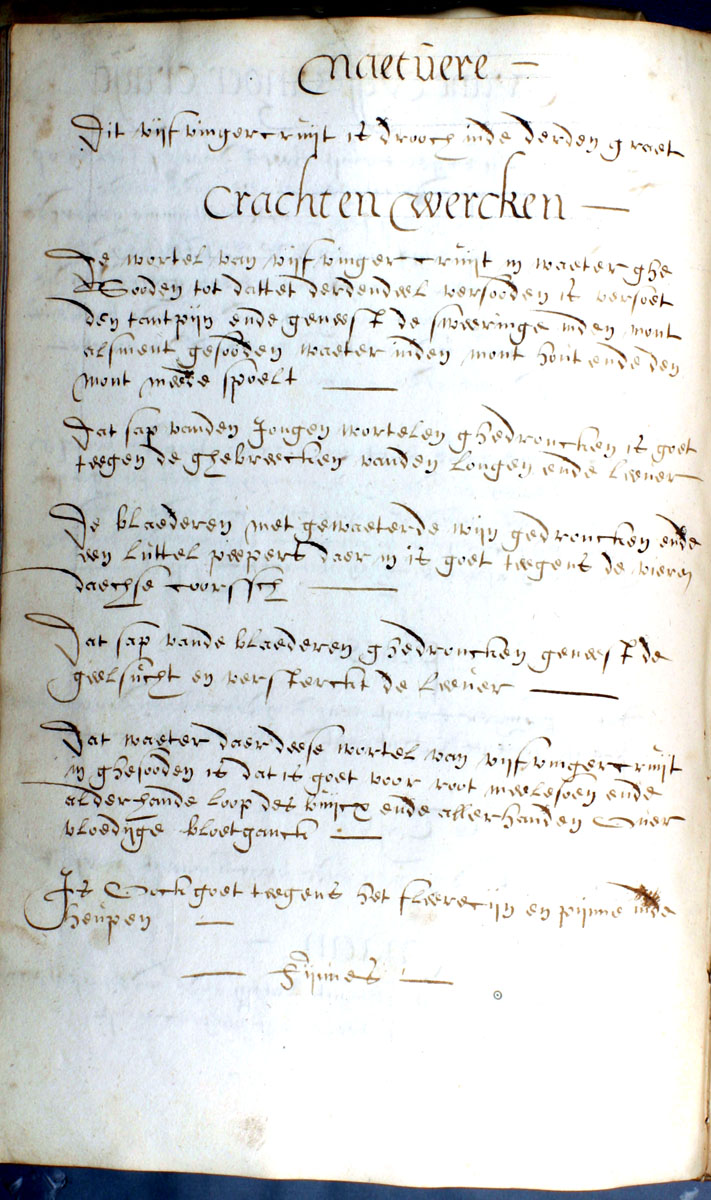 Naetuere —
Dit vijfvingercruijt is drooch inde derden graet
Crachten Wercken —
De wortel van vijfvinger cruijt in waeter ghe
Sooden tot dattet derdendeel versooden is versoet
den tantpijn ende geneest de sweeringe inden mont
alsment gesooden waeter inden mont hout ende den
mont meede spoelt —
Dat sap vanden Jongen wortelen ghedroncken is goet
teegen de ghebreecken vanden longen ende leever
De blaederen met gewaeterde wijn gedroncken ende
een luttel peepers daer in is goet teegens de vieren
daechse coorssch —
Dat sap vande blaederen ghedroncken geneest de
geelsucht en versterckt de leever —
Dat waeter daer deese wortel van vijfvingercruijt
in ghesooden is dat is goet voor root meelesoen ende
alderhande loop des buijcx ende allerhanden Over
vloedijge bloetganck —
Is Oock goet teegens het fleerecijn en pijnne inde
heupen —
— Fijnnes —